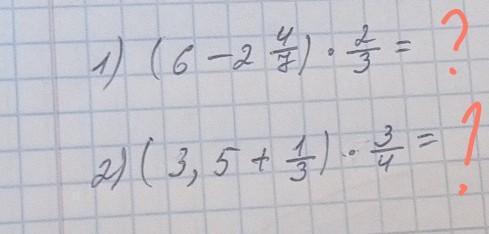 1) (6 - 2 4/7) · 2/3 = ?
2) (3,5 + 1/3) · 3/4 = ?